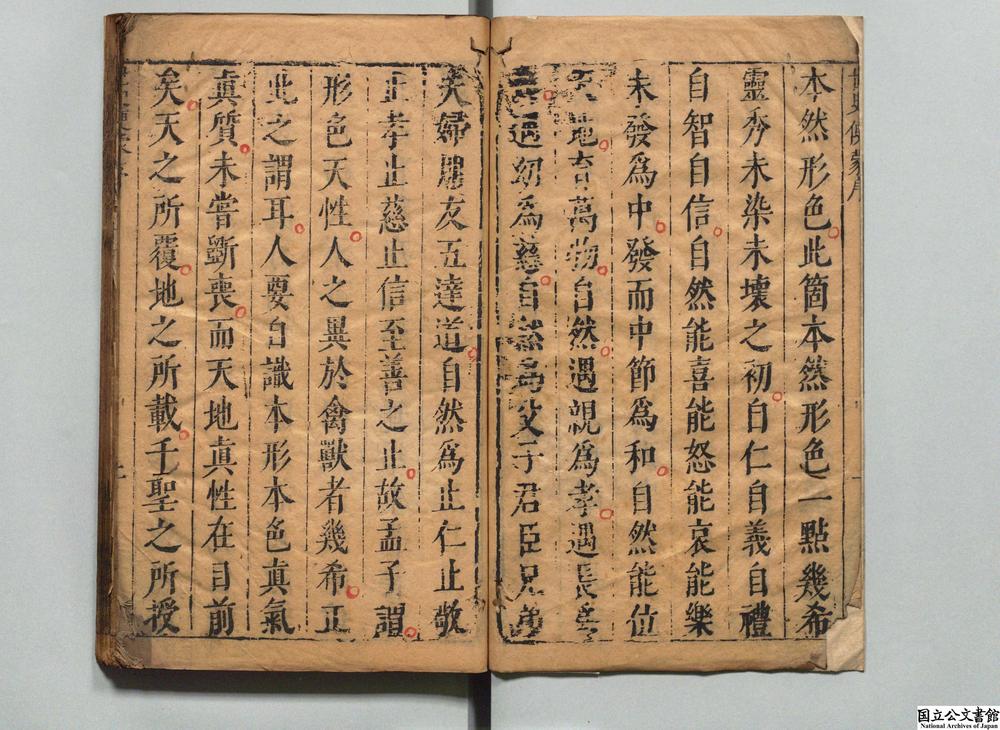 本然形色此箇本然形色一點幾希
靈秀未染未壞之初自仁自義自禮
自智自信自然能喜能怒能哀能樂
未發爲中發而中節爲和自然能位
天地育萬物自然遇親爲孝遇長爲
遇幼爲慈自然爲父子君臣兄弟
夫婦朋友五達道自然爲止仁止敬
止孝止慈止信至善之止故孟子謂
形色天性人之異於禽獸者幾希正
此之謂耳人要自識本形本色真氣
真質未嘗斷喪而天地真性在目前
矣天之所覆地之所載千聖之所授
国立公文書館
National Archives of Japan